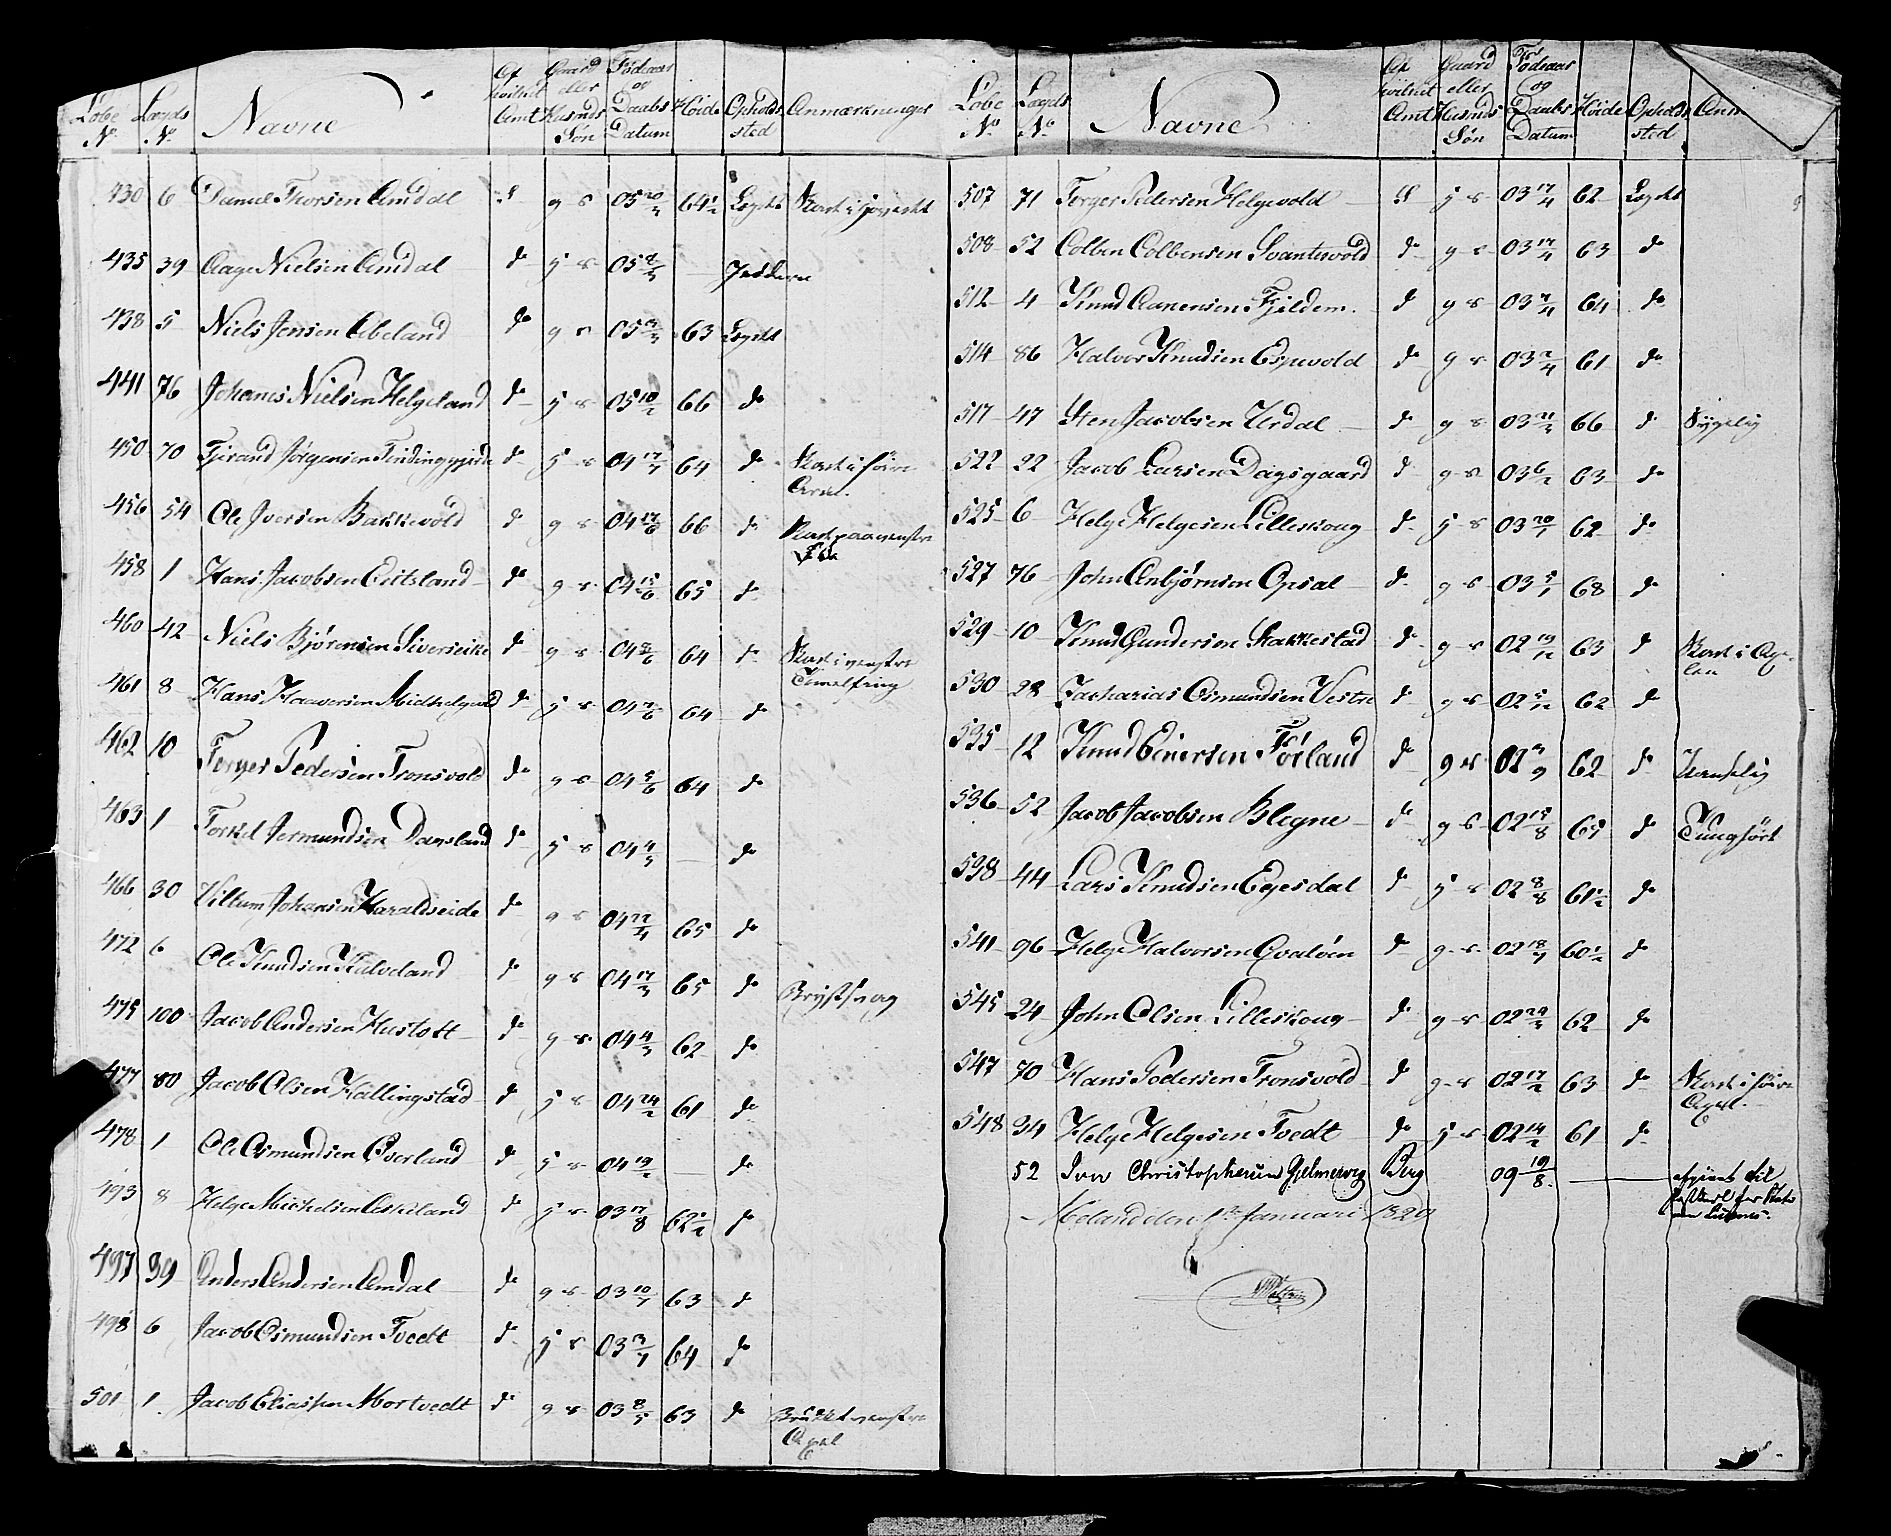 Løbe No. Lægds No. Navne Af hvilket Amt Gaard eller Husmds Søn Fødeaar og Daabs Datum Høide Opholds sted Anmærkninger
430 6 Daniel Thorsen Amdal S g s 05 20/4 64½ Lægdet
435 39 Aage Nielsen Amdal do j s 05 8/3 — Jedderen
438 5 Niels Jensen Abeland do g s 05 3/3 63 Lægdet
441 76 Johanes Nielsen Helgeland do j s 05 10/2 66 do
450 70 Tjerand Jørgensen do j s 04 17/7 64 do Skad i høire Arm.
456 54 Ole Iversen Bakkevold do g s 04 17/6 66 do Skad paa venstre
458 1 Hans Jacobsen Eitsland do g s 04 15/6 65 do
460 42 Niels Bjørensen Sivereike do g s 04 8/6 64 do Skad i venstre Tomelfing
461 8 Hans Haaversen do j s 04 7/6 64 do
462 10 Torger Pedersen Tronsvold do g s 04 5/6 64 do
463 1 Torkel Jermundsen Dansland do j s 04 4/3 — do
466 30 Villum Johansen Haraldseide do g s 04 22/4 65 do
472 6 Ole Knudsen Kalveland do g s 04 17/3 65 do Brystsvag
475 100 Jacob Andersen Hustoft do g s 04 4/3 62 do
477 80 Jacob Olsen Hallingstad do j s 04 24/2 61 do
478 1 Ole Osmundsen Øverland do j s 04 19/2 — do
493 8 Helge Michelsen Eskeland do j s 03 17/8 62½ do
497 39 Anders Andersen Amdal do g s 03 10/7 63 do
498 6 Jacob Osmundsen Tvedt do j s 03 3/7 64 do
501 1 Jacob Eliassen Mortvedt do g s 03 8/5 63 do Brukket venstre
Løbe No. Lægds No. Navne Af hvilket Amt Gaard eller Husmds Søn Fødeaar og Daabs Datum Høide Opholds sted Anm
507 71 Torger Pedersen Helgevold S j s 03 17/4 62 Lægdet
508 52 Colben Colbensen Svantesvold do g s 03 17/4 63 do
512 4 Knud Aanensen Fjeldem. do g s 03 7/4 64 do
514 86 Halvor Knudsen Espevold do g s 03 2/4 61 do
517 47 Sten Jacobsen Urdal do g s 03 21/3 66 do Sygelig
522 22 Jacob Larsen Dagsgaard do g s 03 6/2 63 do
525 6 Helge Helgesen Lilleskoug do j s 03 20/1 62 do
527 76 John Anbjørnsen Opsal do g s 03 5/1 68 do
529 10 Knud Gundersen Stakkestad do g s 02 19/12 63 do
530 28 Zacharias Osmundsen Vestre do g s 02 5/12 62 do
535 12 Knud Einersen Førland do g s 02 9 62 do
536 52 Jacob Jacobsen Blegne do g s 02 15/8 65 do Tunghørt
538 44 Lars Knudsen Egesdal do j s 02 8/8 61½ do
541 96 Helge Halvorsen Qvaløen do g s 02 18/7 60½ do
545 24 John Olsen Lilleskoug do g s 02 24/3 62 do
547 70 Hans Pedersen Tronsvold do g s 02 17/2 63 do Skad i høire
548 34 Helge Helgesen Tvedt do j s 02 14/2 61 do
52 Iver Christophersen Berg 09 19/8 — afgivet til
Meland den Januari 1829